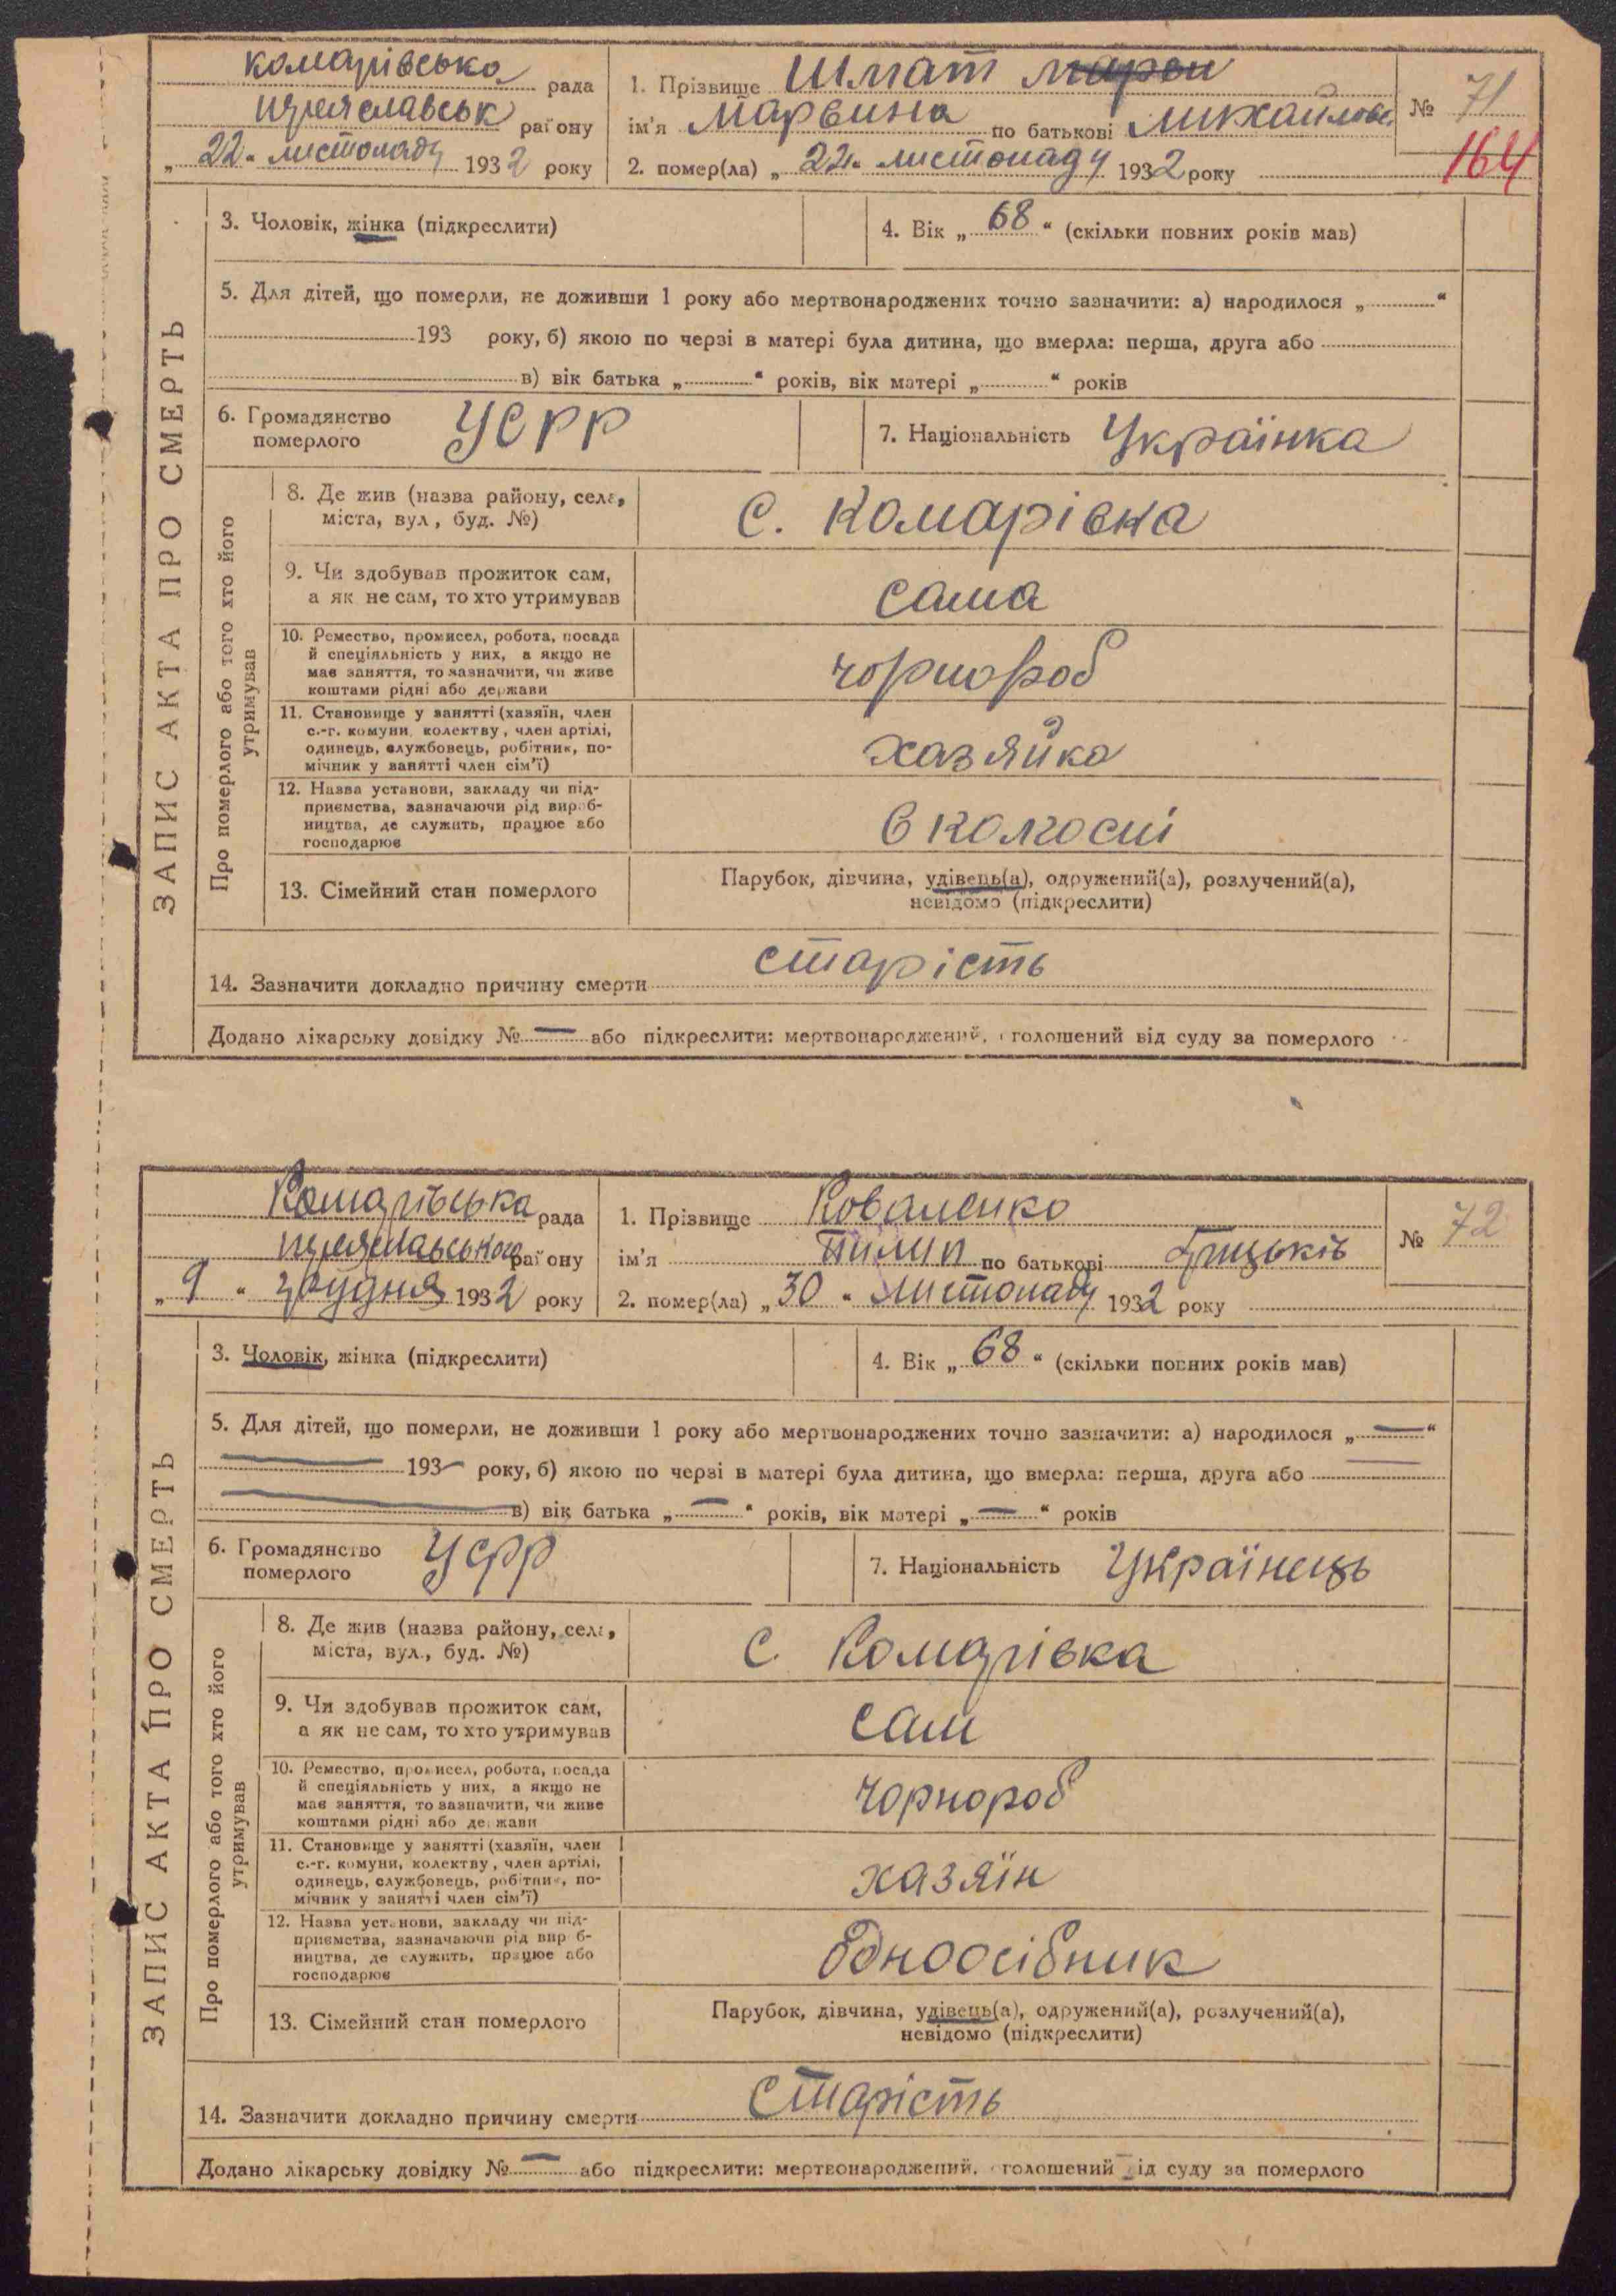 Комарівська рада
ПЕРЕЯСЛАВСЬК району
„ 22 “ листопаду 1932 року
1. Прізвище Шмат
ім'я Марвина по батькові Михайлов.
2. помер(ла) „ 22 “ листопаду 1932 року
№ 71
164
ЗАПИС АКТА ПРО СМЕРТЬ
3. Чоловік, жінка (підкреслити)
4. Вік „ 68 “ (скільки повних років мав)
5. Для дітей, що померли, не доживши 1 року або мертвонароджених точно зазначити: а) народилося „ “
193 року, б) якою по черзі в матері була дитина, що вмерла: перша, друга або
в) вік батька „ “ років, вік матері „ “ років
6. Громадянство
померлого
УСРР
7. Національність Українка
Про померлого або того хто його
утримував
8. Де жив (назва району, села,
міста, вул, буд. №)
С. Комарівка
9. Чи здобував прожиток сам,
а як не сам, то хто утримував
сама
10. Ремество, промисел, робота, посада
й спеціяльність у них, а якщо не
має заняття, то зазначити, чи живе
коштами рідні або держави
чорнороб
11. Становище у занятті (хазяїн, член
с.-г. комуни, колектву, член артілі,
одинець, службовець, робітник, по-
мічник у занятті член сім'ї)
хазяйка
12. Назва установи, закладу чи під-
приємства, зазначаючи рід вироб-
ництва, де служить, працює або
господарює
в колгоспі
13. Сімейний стан померлого
Парубок, дівчина, удівець(а), одружений(а), розлучений(а),
невідомо (підкреслити)
14. Зазначити докладно причину смерти старість
Додано лікарську довідку № — або підкреслити: мертвонароджений, оголошений від суду за померлого
Комарівська рада
Переяславського району
„ 9 “ грудня 1932 року
1. Прізвище Коваленко
ім'я Пилип по батькові Грицьків
2. помер(ла) „ 30 “ Листопаду 1932 року
№ 72
ЗАПИС АКТА ПРО СМЕРТЬ
3. Чоловік, жінка (підкреслити)
4. Вік „ 68 “ (скільки повних років мав)
5. Для дітей, що померли, не доживши 1 року або мертвонароджених точно зазначити: а) народилося „ — “
— 193— року, б) якою по черзі в матері була дитина, що вмерла: перша, друга або —
— в) вік батька „ — “ років, вік матері „ — “ років
6. Громадянство
померлого
УСРР
7. Національність Українець
Про померлого або того хто його
утримував
8. Де жив (назва району, села,
міста, вул., буд. №)
С Комарівка
9. Чи здобував прожиток сам,
а як не сам, то хто утримував
сам
10. Ремество, промисел, робота, посада
й спеціяльність у них, а якщо не
має заняття, то зазначити, чи живе
коштами рідні або держави
чорнороб
11. Становище у занятті (хазяїн, член
с.-г. комуни, колектву, член артілі,
одинець, службовець, робітник, по-
мічник у занятті член сім'ї)
хазяїн
12. Назва установи, закладу чи під-
приємства, зазначаючи рід вироб-
ництва, де служить, працює або
господарює
Одноосібник
13. Сімейний стан померлого
Парубок, дівчина, удівець(а), одружений(а), розлучений(а),
невідомо (підкреслити)
14. Зазначити докладно причину смерти Старість
Додано лікарську довідку № — або підкреслити: мертвонароджений, оголошений від суду за померлого